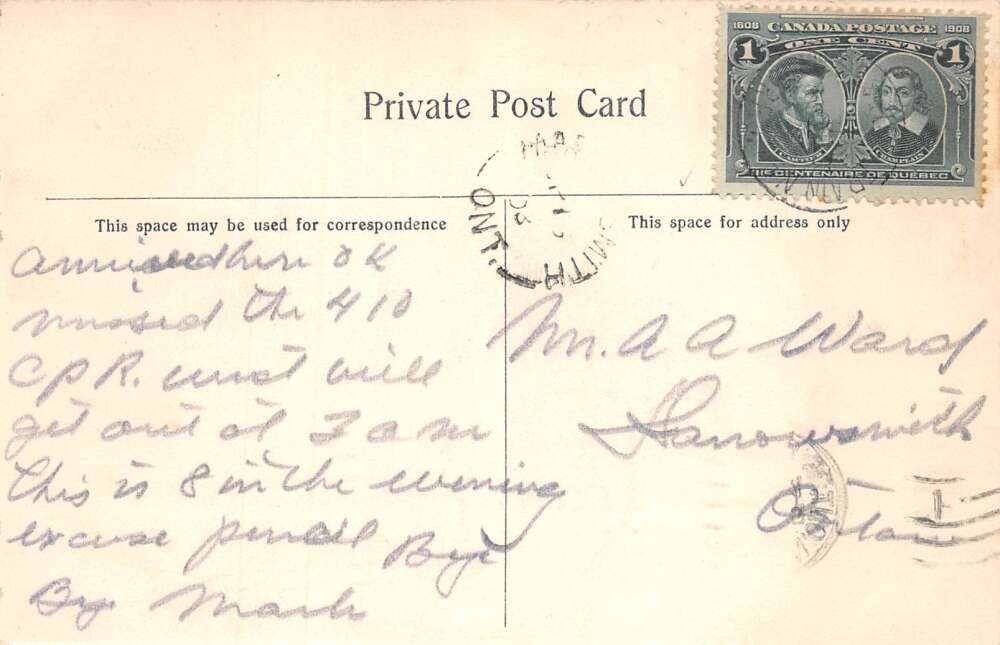 1608 CANADA POSTAGE 1908
1 ONE CENT 1
CARTIER CHAMPLAIN
IIIe CENTENAIRE DE QUÉBEC
Private Post Card
ONT. SMITH
This space may be used for correspondence
This space for address only
arrived here O K
missed the 4 10
C P R. west will
get out at 3 a m
This is 8 in the evening
excuse pencil Bye
By Mark
Mr. A A Ward
Harrowsmith
Ontario